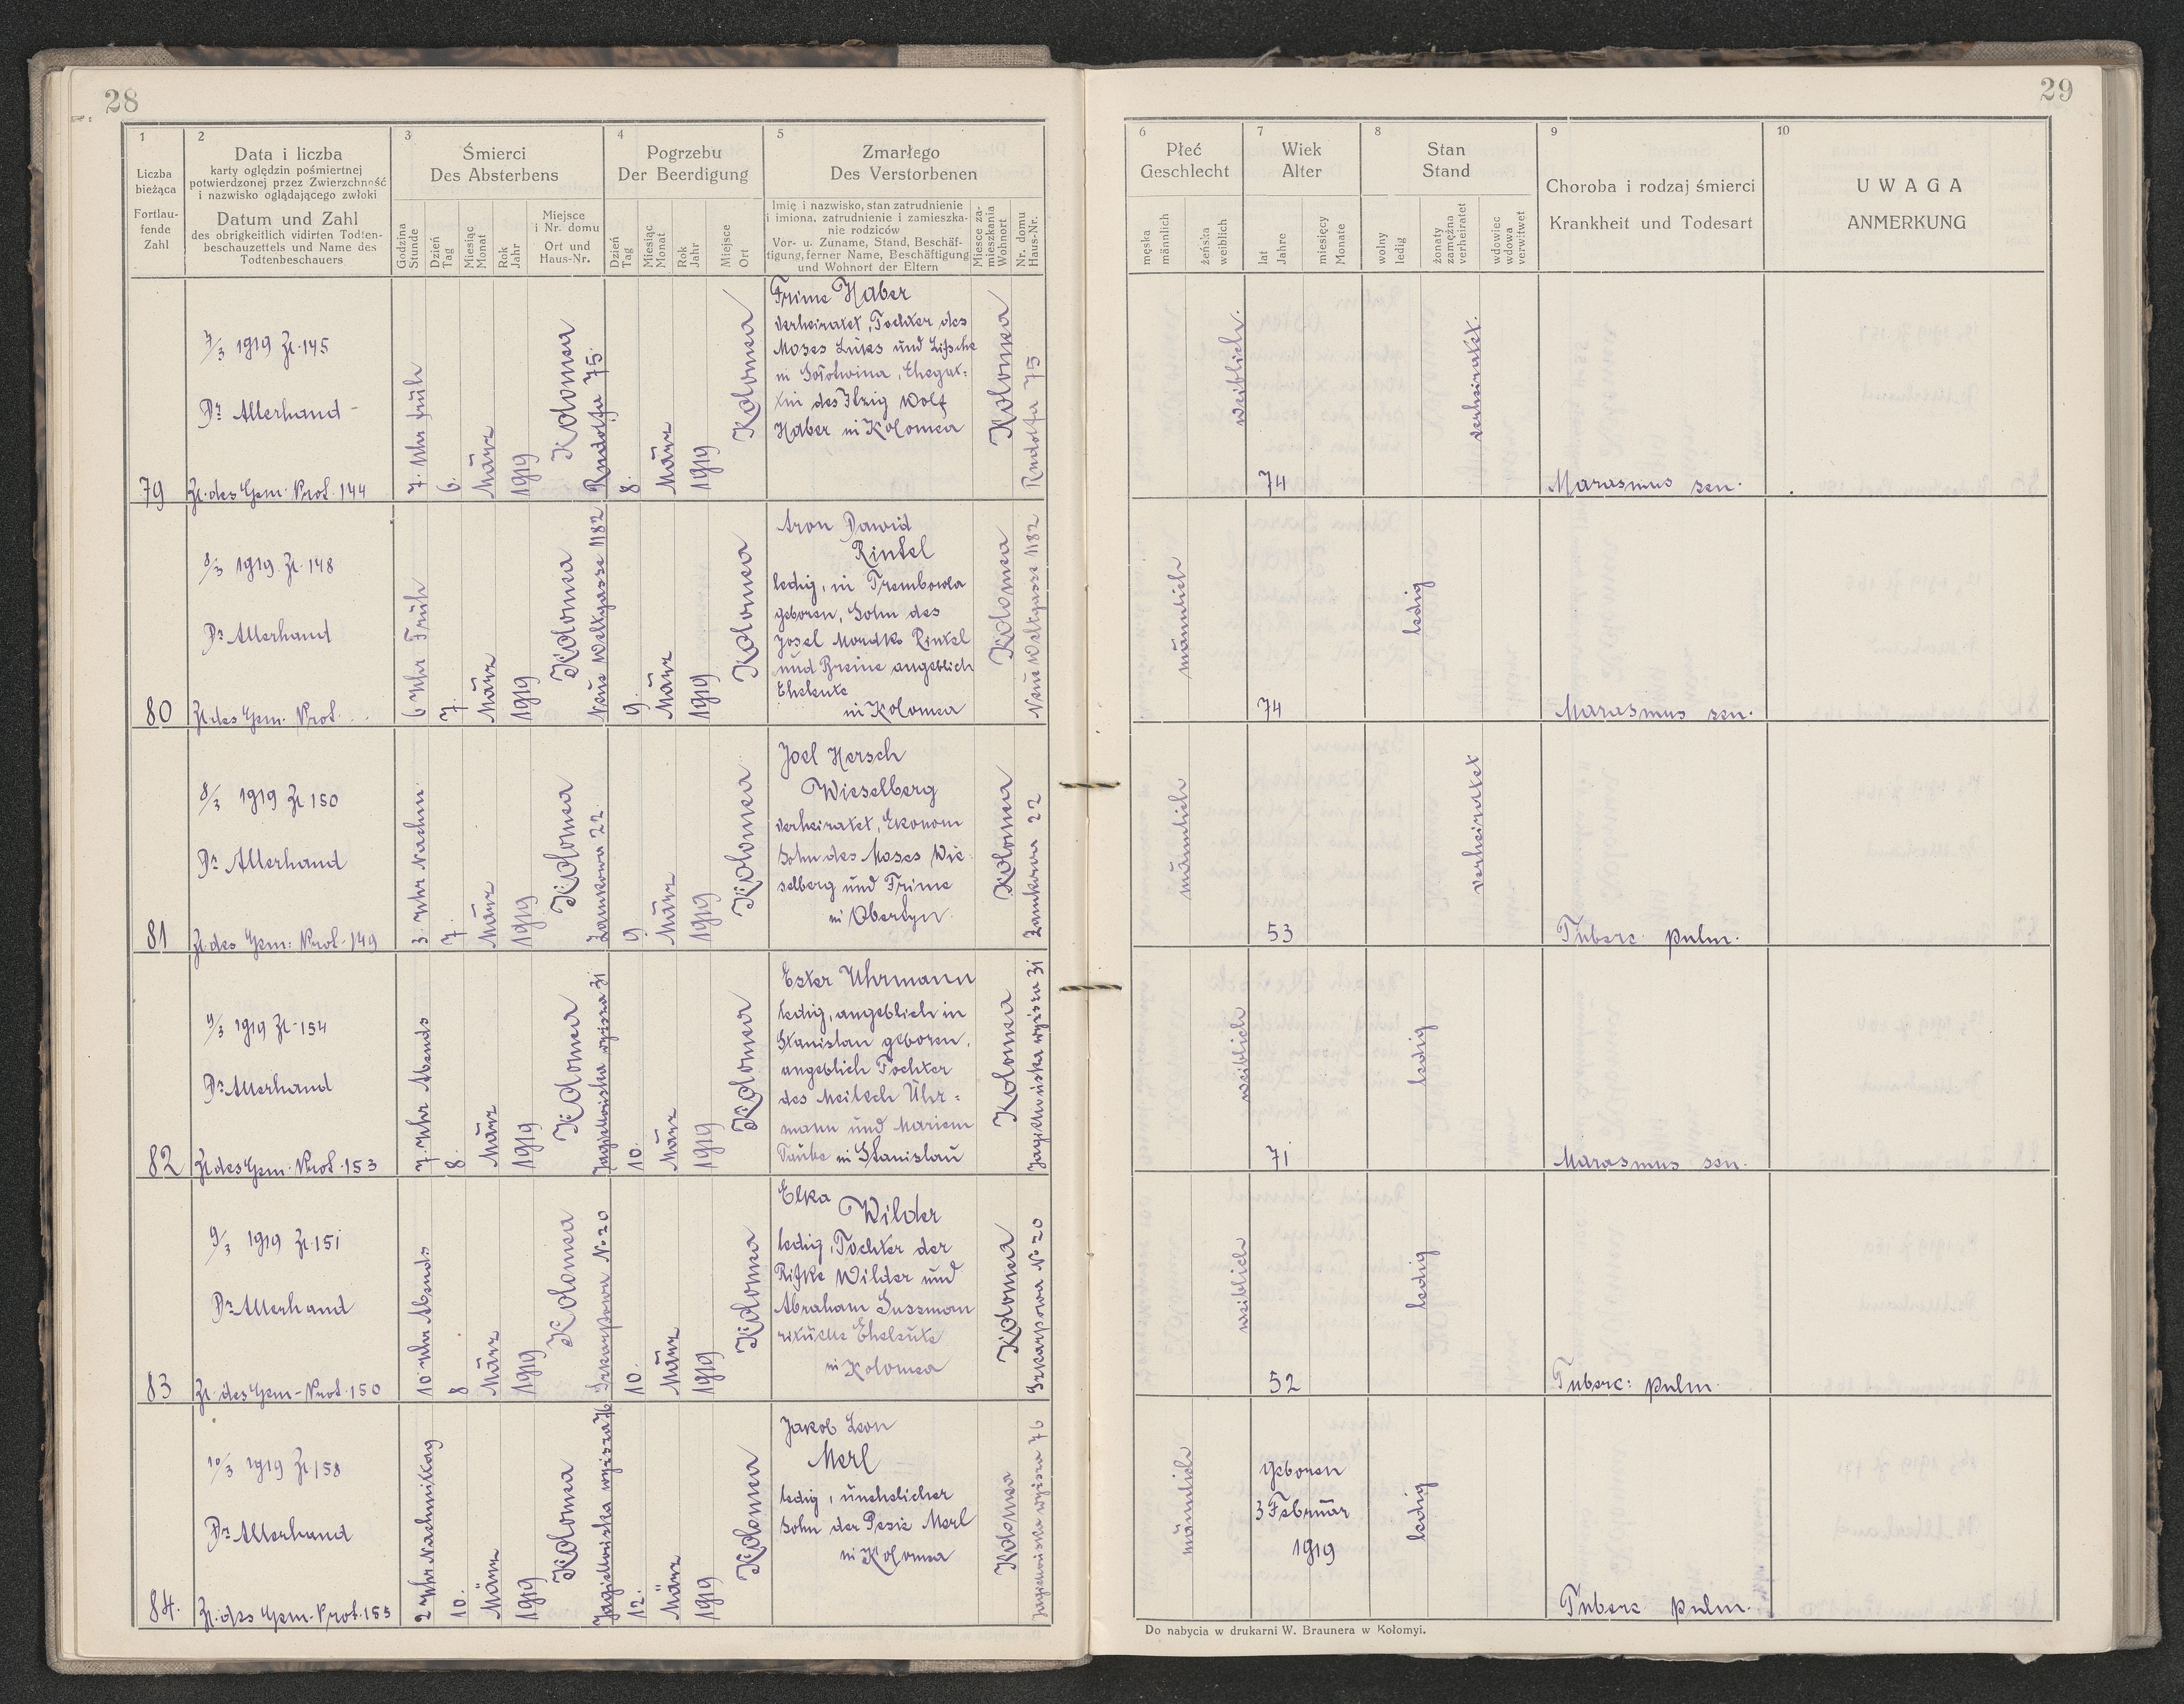 28
1
Liczba
bieżąca
Fortlau-
fende
Zahl
2
Data i liczba
karty oględzin pośmiertnej
potwierdzonej przez Zwierzchność
i nazwisko oglądającego zwłoki
Datum und Zahl
des obrigkeitlich vidirten Todten-
beschauzettels und Name des
Todtenbeschauers
3
Śmierci
Des Absterbens
Godzina
Stunde
Dzień
Tag
Miesiąc
Monat
Rok
Jahr
Miejsce
i Nr. domu
Ort und
Haus-Nr.
4
Pogrzebu
Der Beerdigung
Dzień
Tag
Miesiąc
Monat
Rok
Jahr
Miejsce
Ort
5
Zmarłego
Des Verstorbenen
Imię i nazwisko, stan zatrudnienie
i imiona, zatrudnienie i zamieszka-
nie rodziców
Vor- u. Zuname, Stand, Beschäf-
tigung, ferner Name, Beschäftigung
und Wohnort der Eltern
Miesce za-
mieszkania
Wohnort
Nr. domu
Haus-Nr.
79
7/3 1919 Zl. 145
Dr Allerhand
Zl. des Gem. Prot. 144
7. Uhr früh
6.
März
1919
Kolomea
Rudolfa 75.
8.
März
1919
Kolomea
Frime Haber
verheiratet, Tochter des
Moses Luks und Lifsche
in Sołotwina, Ehegat-
tin des Itzig Wolf
Haber in Kolomea
Kolomea
Rudolfa 75
80
8/3 1919 Zl. 148
Dr Allerhand
Zl. des Gem. Prot. ...
6 Uhr Früh
7.
März
1919
Kolomea
Neue Weltgasse 1182
9.
März
1919
Kolomea
Aron Dawid
Rintel
ledig, in Trembowla
geboren, Sohn des
Josel Mordko Rintel
und Breine angeblich
Eheleute
in Kolomea
Kolomea
Neue Weltgasse 1182
81
8/3 1919 Zl 150
Dr Allerhand
Zl. des Gem: Prot. 149
3. Uhr Nachm
7.
März
1919
Kolomea
Zamkowa 22.
9
März
1919
Kolomea
Joel Hersch
Wieselberg
verheiratet, Ekonom
Sohn des Moses Wie-
selberg und Frime
in Obertyn.
Kolomea
Zamkowa 22
82
9/3 1919 Zl. 154
Dr Allerhand
Zl des Gem. Prot. 153
7. Uhr Abends
8.
März
1919
Kolomea
Jagiellońska wyższa 31
10.
März
1919
Kolomea
Ester Uhrmann
ledig, angeblich in
Stanislau geboren,
angeblich Tochter
des Meilech Uhr-
mann und Mariem
Taube in Stanislau
Kolomea
Jagiellońska wyższa 31
83
9/3 1919 Zl. 151
Dr Allerhand
Zl. des Gem-Prot. 150
10 Uhr Abends
8
März
1919
Kolomea
Szkarpowa No 20
10.
März
1919
Kolomea
Elka
Wilder
ledig, Tochter der
Rifke Wilder und
Abraham Sussman
rituelle Eheleute
in Kolomea
Kolomea
Szkarpowa No 20
84.
10/3 1919 Zl 158
Dr Allerhand
Zl. des Gem-Prot. 155
2 Uhr Nachmittag
10.
März
1919
Kolomea
Jagiellońska wyższa 76
12.
März
1919
Kolomea
Jakob Leon
Merl
ledig, unehelicher
Sohn der Pesie Merl
in Kolomea
Kolomea
Jagiellońska wyższa 76
29
6
Płeć
Geschlecht
męska
männlich
żeńska
weiblich
7
Wiek
Alter
lat
Jahre
miesięcy
Monate
8
Stan
Stand
wolny
ledig
żonaty
zamężna
verheiratet
wdowiec
wdowa
verwitwet
9
Choroba i rodzaj śmierci
Krankheit und Todesart
10
UWAGA
ANMERKUNG
weiblich.
74
verheiratet.
Marasmus sen.
männlich
74
ledig
Marasmus sen.
männlich
53
verheiratet
Tuberc. pulm.
weiblich
71
ledig
Marasmus sen.
weiblich
52
ledig
Tuberc: pulm.
männlich
geboren
3 Februar
1919
ledig
Tuberc pulm.
Do nabycia w drukarni W. Braunera w Kołomyi.